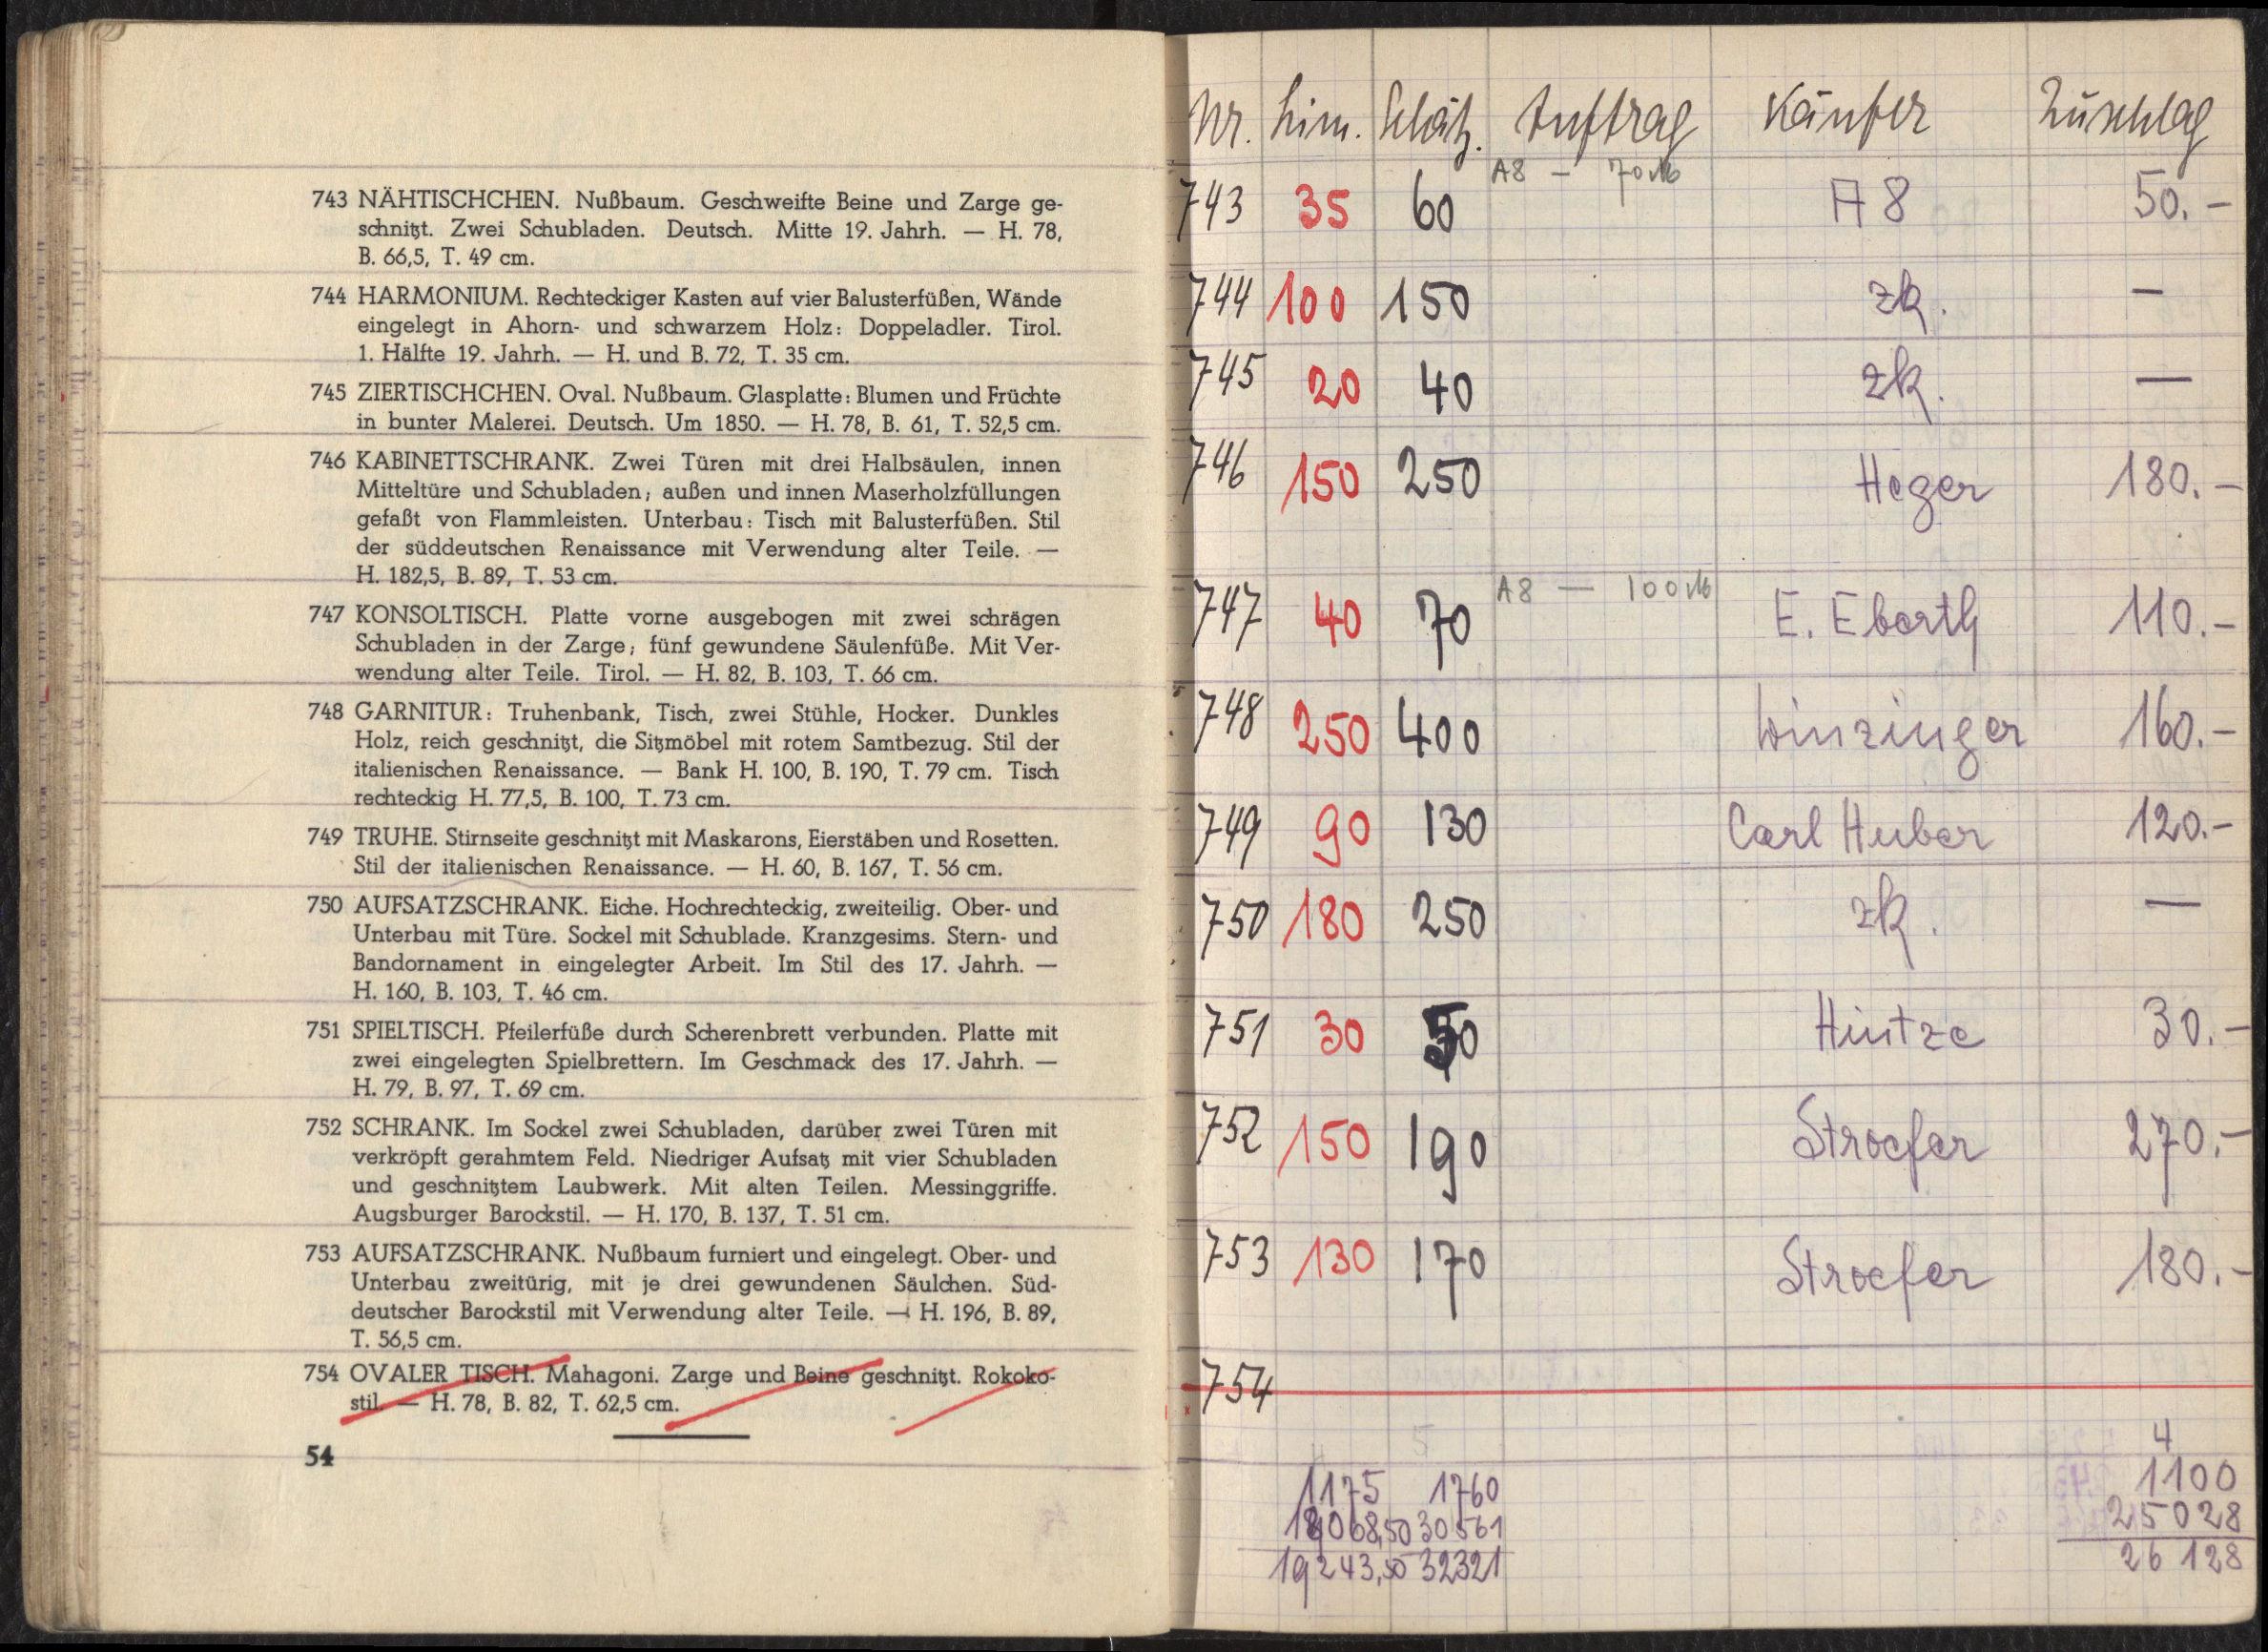 743 NÄHTISCHCHEN. Nußbaum. Geschweifte Beine und Zarge ge-
schnitzt. Zwei Schubladen. Deutsch. Mitte 19. Jahrh. — H. 78,
B. 66,5, T. 49 cm.
744 HARMONIUM. Rechteckiger Kasten auf vier Balusterfüßen, Wände
eingelegt in Ahorn- und schwarzem Holz: Doppeladler. Tirol.
1. Hälfte 19. Jahrh. — H. und B. 72, T. 35 cm.
745 ZIERTISCHCHEN. Oval. Nußbaum. Glasplatte: Blumen und Früchte
in bunter Malerei. Deutsch. Um 1850. — H. 78, B. 61, T. 52,5 cm.
746 KABINETTSCHRANK. Zwei Türen mit drei Halbsäulen, innen
Mitteltüre und Schubladen; außen und innen Maserholzfüllungen
gefaßt von Flammleisten. Unterbau: Tisch mit Balusterfüßen. Stil
der süddeutschen Renaissance mit Verwendung alter Teile. —
H. 182,5, B. 89, T. 53 cm.
747 KONSOLTISCH. Platte vorne ausgebogen mit zwei schrägen
Schubladen in der Zarge; fünf gewundene Säulenfüße. Mit Ver-
wendung alter Teile. Tirol. — H. 82, B. 103, T. 66 cm.
748 GARNITUR: Truhenbank, Tisch, zwei Stühle, Hocker. Dunkles
Holz, reich geschnitzt, die Sitzmöbel mit rotem Samtbezug. Stil der
italienischen Renaissance. — Bank H. 100, B. 190, T. 79 cm. Tisch
rechteckig H. 77,5, B. 100, T. 73 cm.
749 TRUHE. Stirnseite geschnitzt mit Maskarons, Eierstäben und Rosetten.
Stil der italienischen Renaissance. — H. 60, B. 167, T. 56 cm.
750 AUFSATZSCHRANK. Eiche. Hochrechteckig, zweiteilig. Ober- und
Unterbau mit Türe. Sockel mit Schublade. Kranzgesims. Stern- und
Bandornament in eingelegter Arbeit. Im Stil des 17. Jahrh. —
H. 160, B. 103, T. 46 cm.
751 SPIELTISCH. Pfeilerfüße durch Scherenbrett verbunden. Platte mit
zwei eingelegten Spielbrettern. Im Geschmack des 17. Jahrh. —
H. 79, B. 97, T. 69 cm.
752 SCHRANK. Im Sockel zwei Schubladen, darüber zwei Türen mit
verkröpft gerahmtem Feld. Niedriger Aufsatz mit vier Schubladen
und geschnitztem Laubwerk. Mit alten Teilen. Messinggriffe.
Augsburger Barockstil. — H. 170, B. 137, T. 51 cm.
753 AUFSATZSCHRANK. Nußbaum furniert und eingelegt. Ober- und
Unterbau zweitürig, mit je drei gewundenen Säulchen. Süd-
deutscher Barockstil mit Verwendung alter Teile. — H. 196, B. 89,
T. 56,5 cm.
754 OVALER TISCH. Mahagoni. Zarge und Beine geschnitzt. Rokoko-
stil. — H. 78, B. 82, T. 62,5 cm.
54
Nr. Lim. Schätz. Auftrag Käufer Zuschlag
A8 — 70 M
743 35 60 A8 50.-
744 100 150 zk. —
745 20 40 zk. —
746 150 250 Heger 180.-
A8 — 100 M
747 40 70 E. Eberth 110.-
748 250 400 Winzinger 160.-
749 90 130 Carl Huber 120.-
750 180 250 zk. —
751 30 50 Hintze 30.-
752 150 190 Stroefer 270.-
753 130 170 Stroefer 180.-
754
4
1175 1760 1100
18068,50 30561 25028
19243,50 32321 26128